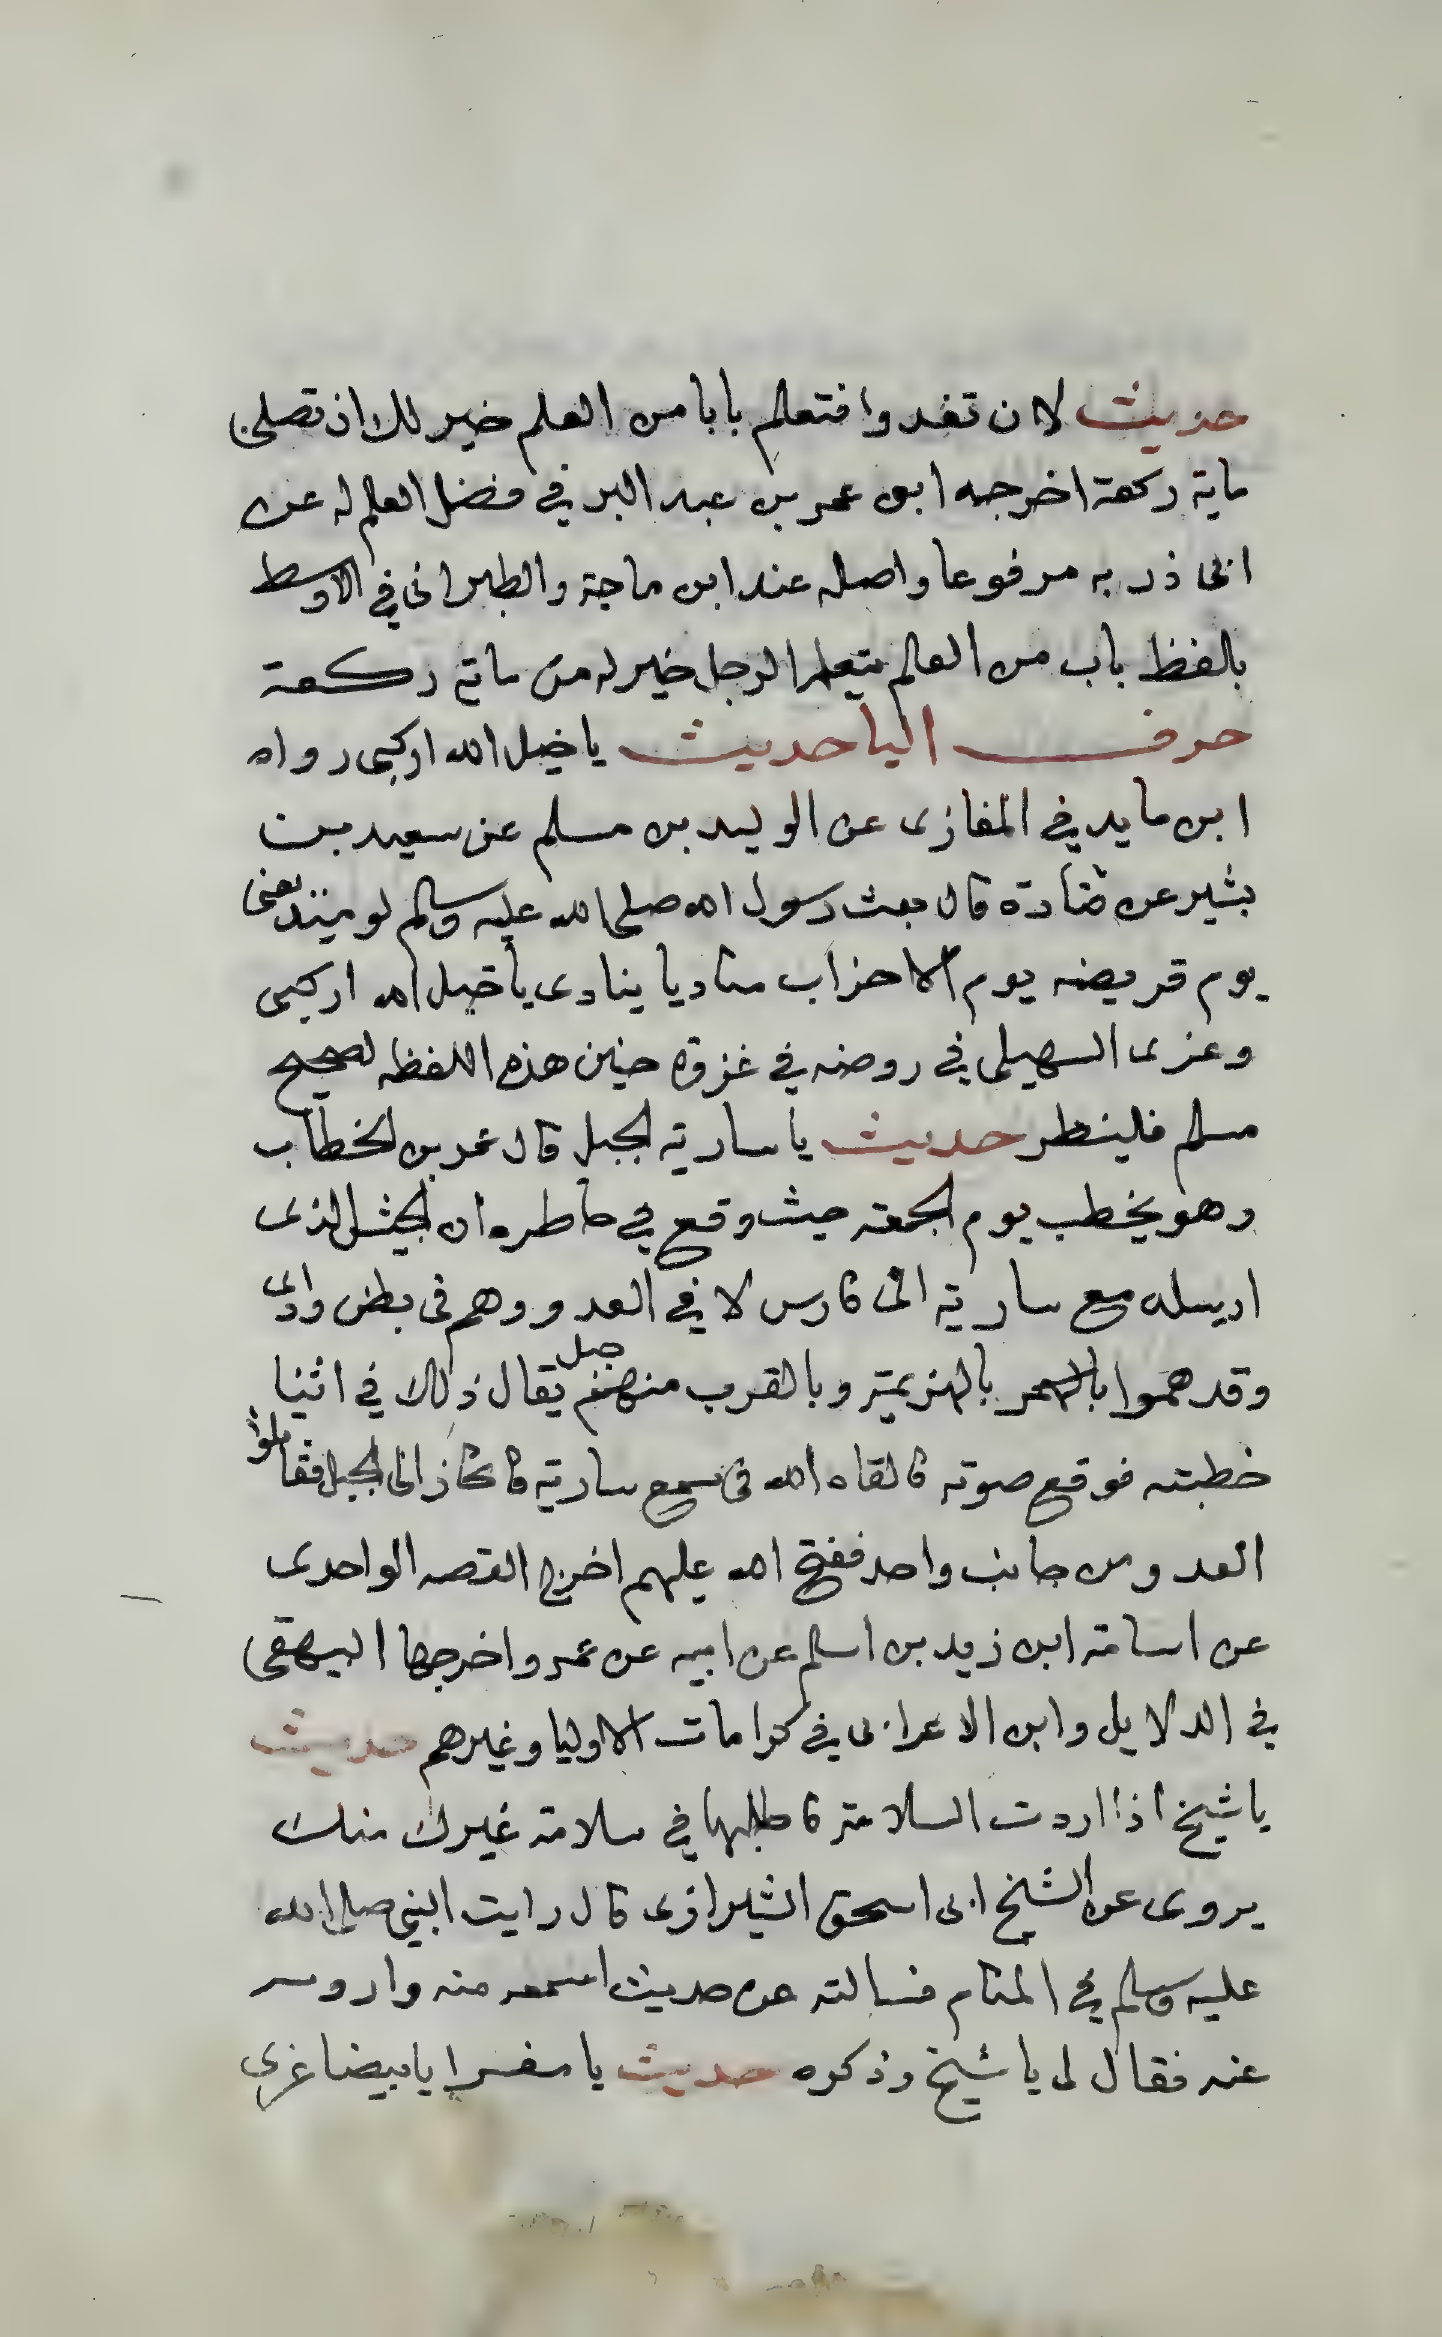 حديث لان تغدوا فتعلم بابا من العلم خير لك اذ تصلى
ماية ركعة اخرجه ابو عمر بن عبد البر في فضل العلم له عن
ابى ذر به مرفوعا واصله عند ابن ماجة والطبرانى في الاوسط
بلفظ باب من العلم يتعلمه الرجل خير له من ماية ركعة
حرف اليا حديث يا خيل الله اركبى رواه
ابن مايد في المغازى عن الوليد بن مسلم عن سعيد بن
بشير عن قتادة قال بعث رسول الله صلى الله عليه وسلم يوميذ يعنى
يوم قريضه يوم الاحزاب مناديا ينادى يا خيل الله اركبى
وعزى السهيلى في روضه في غزوه حنين هذه اللفظه لصحيح
مسلم فلينظر حديث يا سارية الجبل قال عمر بن الخطاب
وهو يخطب يوم الجمعه حيث وقع في خاطره ان الجيش الذى
ارسله مع سارية الى فارس لا في العدو وهم فى بطن وادى
وقد هموا بالهزيمة وبالقرب منهم جبل يقال ذلك في اثنا
خطبته فوقع صوته فالقاه الله فى سمع سارية فانحاز الى الجبل فقاتلوا
العدو من جانب واحد ففتح الله عليهم اخرج القصه الواحدى
عن اسامة ابن زيد بن اسلم عن ابيه عن عمر واخرجها البيهقى
في الدلايل وابن الاعرابى في كرامات الاوليا وغيرهم حديث
يا شيخ اذا اردت السلامة فاطلبها في سلامة غيرك منك
يروى عن الشيخ ابى اسحق الشيرازى قال رايت النبي صلى الله
عليه وسلم في المنام فسالته عن حديث اسمعه منه وارويه
عنه فقال لى يا شيخ وذكره حديث يا صفرا يا بيضا غرى